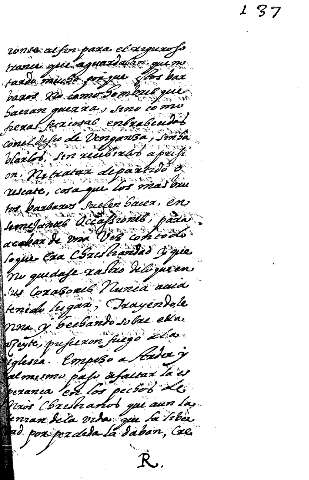 137
ronse al fin para el riguroso
trance que aguardaban que no
tardo mucho porque estos bar
baros no como hombres que
hacian guerra, sino como
fieras furiosas enbrabecidas
con el deseo de venganza, sin ha
blarlos, sin recibirlos a prisi
on, ni tratar de partido o
rescate, cosa que los mas bru
tos barbaros suelen hacer, en
semejantes ocassiones, para
acabar de una vez con todo
lo que era Christiandad y que
no quedase rastro de lo que en
sus corazones nunca avia
tenido lugar. Trayendo le
ña, y hechando sobre ella
aseyte, pusieron fuego a la
Iglesia. Empezo a arder, y
al mesmo paso a faltar la es
peranza en los pechos de
Christianos que aun la
de la vida que la liber
tad por perdida la daban, Cre
R.